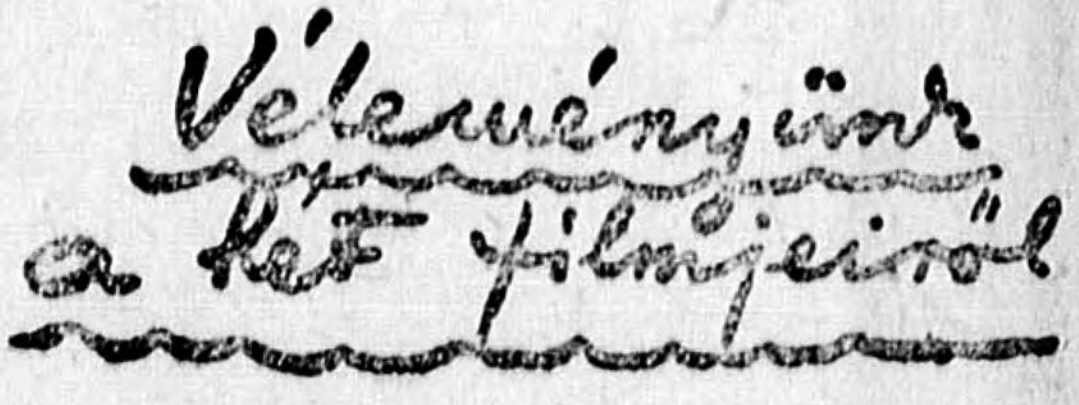 Véleményünk
a hét filmjeiről